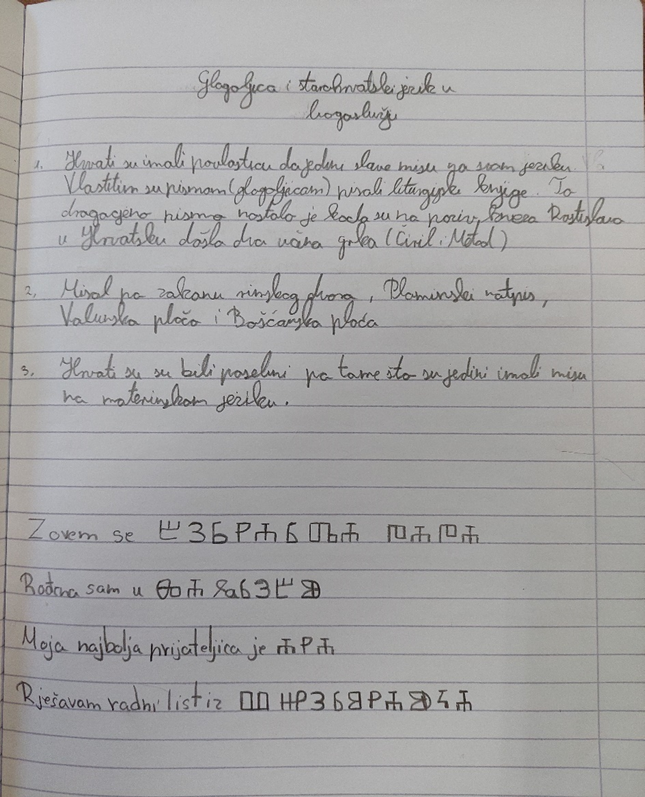 Glagoljica i starohrvatski jezik u
bogoslužju
1. Hrvati su imali povlasticu da jedini slave misu na svom jeziku.
Vlastitim su pismom (glagoljicom) pisali liturgijske knjige. To
dragocjeno pismo nastalo je kada su na poziv kneza Rastislava
u Hrvatsku došla dva učena grka (Ćiril i Metod)
2. Misal po zakonu rimskog dvora, Plominski natpis,
Valunska ploča i Bošćanska ploča
3. Hrvati su su bili posebni po tome što su jedini imali misu
na materinskom jeziku.
Zovem se
Rođena sam u
Moja najbolja prijateljica je ⰰⱀⰰ
Rješavam radni list iz